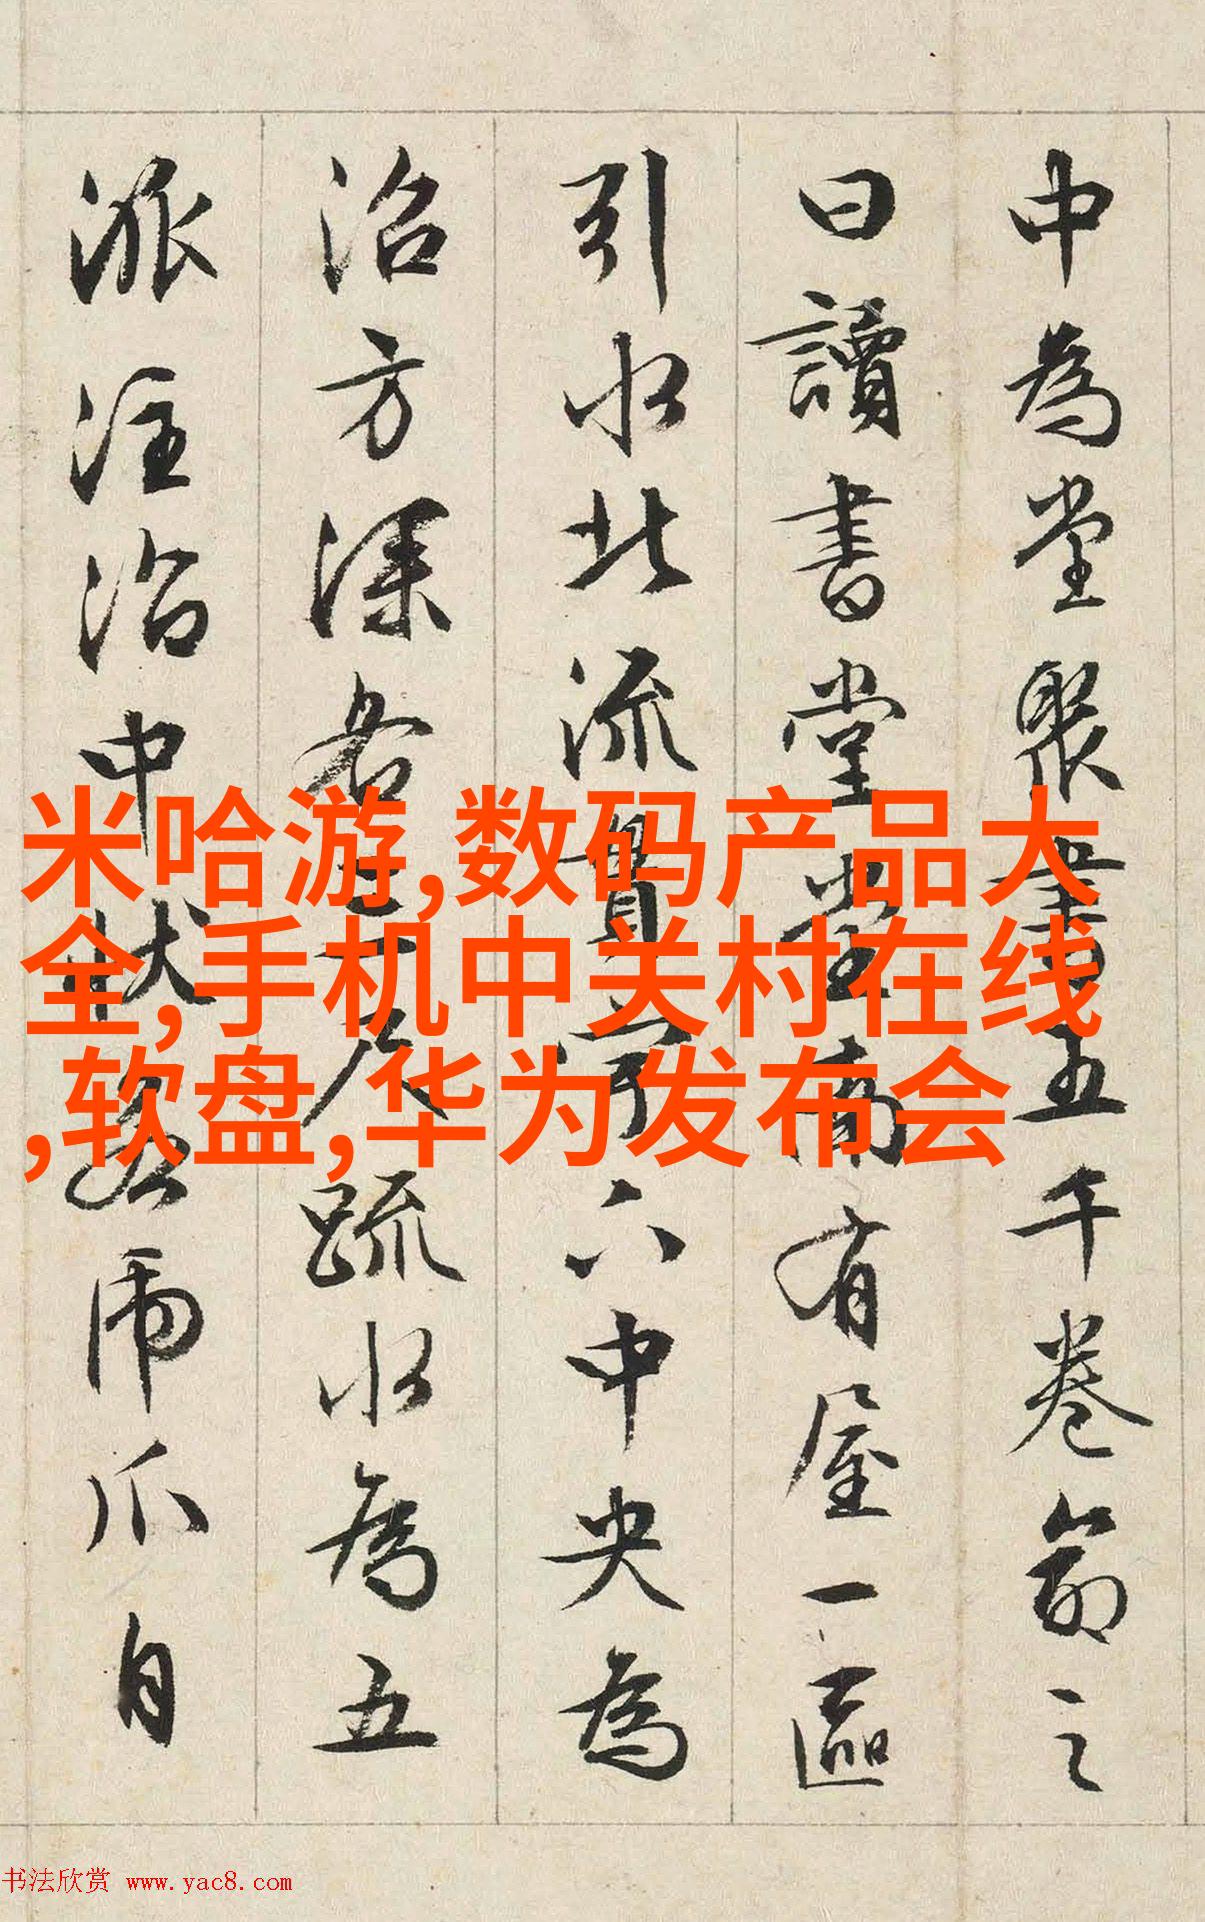 中為堂聚書五千卷命之
曰讀書堂堂南有屋一區
引水北流貫宇下中央為
沼方深各三尺疏水為五
派注沼中狀若虎爪自
米哈游,数码产品大
全,手机中关村在线
,软盘,华为发布会
书法欣赏 www.yac8.com